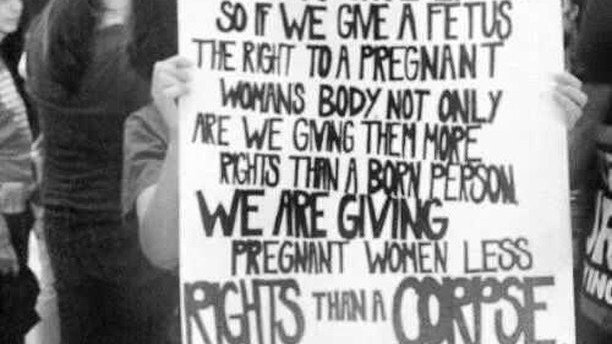 SO IF WE GIVE A FETUS
THE RIGHT TO A PREGNANT
WOMANS BODY NOT ONLY
ARE WE GIVING THEM MORE
RIGHTS THAN A BORN PERSON.
WE ARE GIVING
PREGNANT WOMEN LESS
RIGHTS THAN A CORPSE.